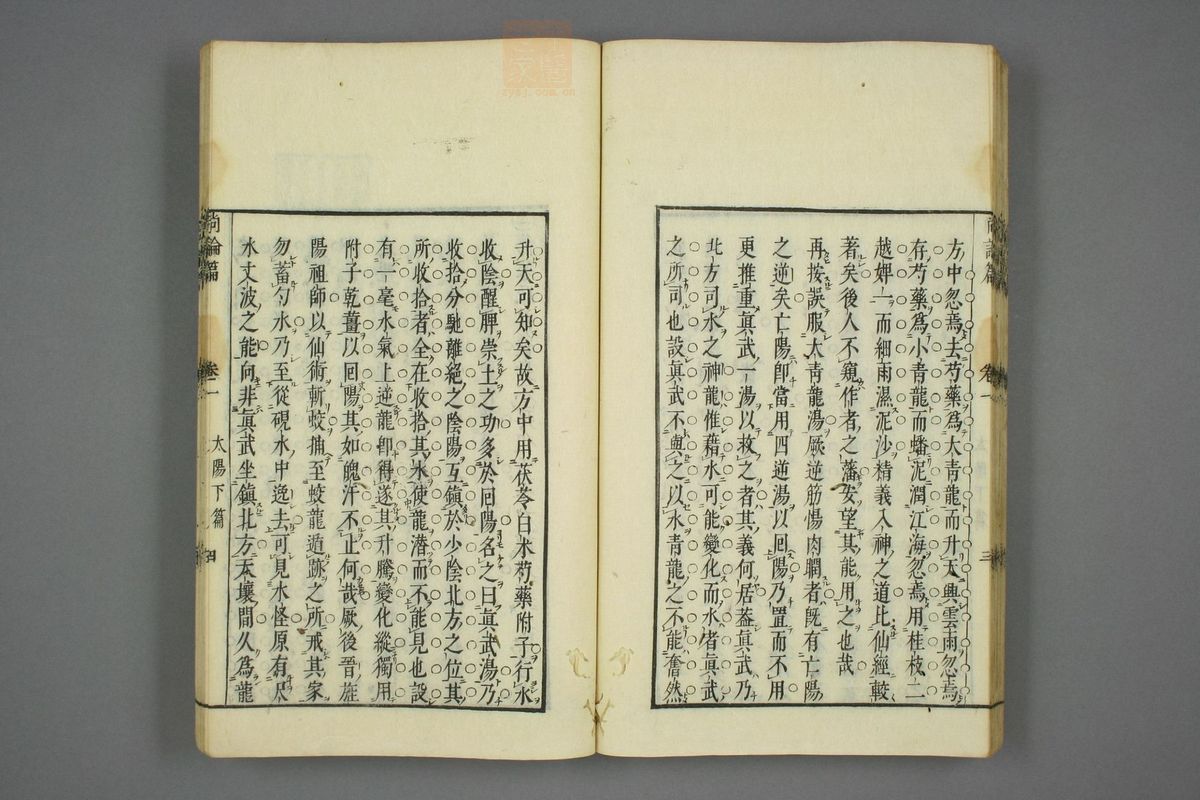 方中忽焉去芍藥爲大青龍而升天興雲雨忽焉
存芍藥爲小青龍而蟠泥潤江海忽焉用桂枝二
越婢一而細雨濕泥沙精義入神之道比仙經較
著矣後人不窺作者之藩安望其能用之也哉
再按誤服大青龍湯厥逆筋惕肉瞤者既有亡陽
之逆矣亡陽即當用四逆湯以回陽乃置而不用
更推重眞武一湯以救之者其義何居葢眞武乃
北方司水之神龍惟藉水可能變化而水者眞武
之所司也設眞武不與之以水青龍之不能奮然
升天可知矣故方中用茯苓白朮芍藥附子行水
收陰醒脾崇土之功多於回陽名之曰眞武湯乃
收拾分馳離絕之陰陽互鎮於少陰北方之位其
所收拾者全在收拾其水使龍潜而不能見也設
有一毫水氣上逆龍卽得遂其升騰變化縱獨用
附子乾薑以回陽其如魄汗不止何哉厥後晉旌
陽祖師以仙術斬蛟捕至蛟龍遁跡之所戒其家
勿蓄勺水乃至從硯水中逸去可見水怪原有尺
水丈波之能向非眞武坐鎮北方天壤間久爲龍
尙論篇
卷一
太陽下篇
四
卷一
三
zysj.com.cn